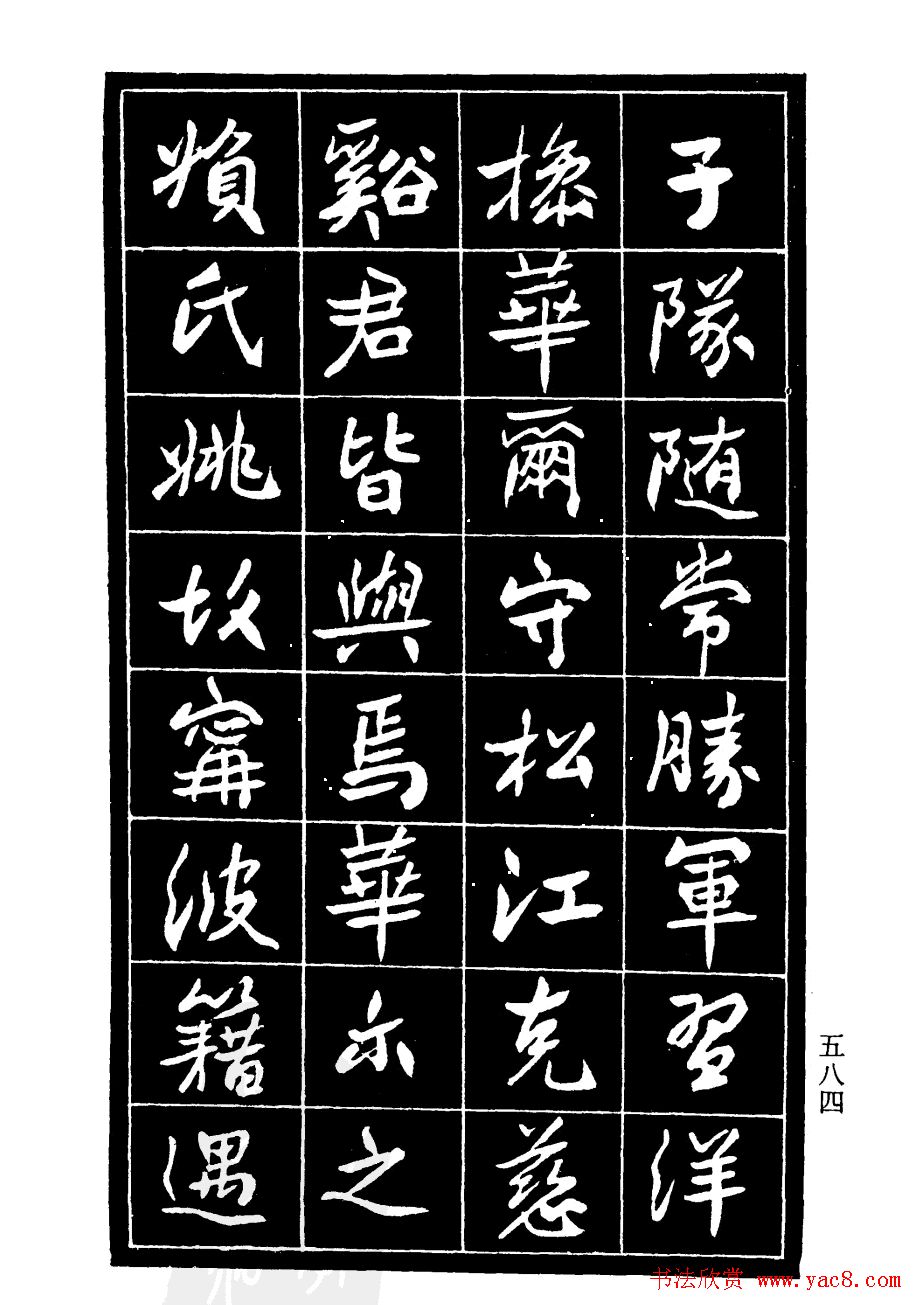 子隊随常勝軍習洋
操華爾守松江克慈
谿君皆與焉華尒之
媍氏姚故寗波籍遇
五八四
书法欣赏 www.yac8.com